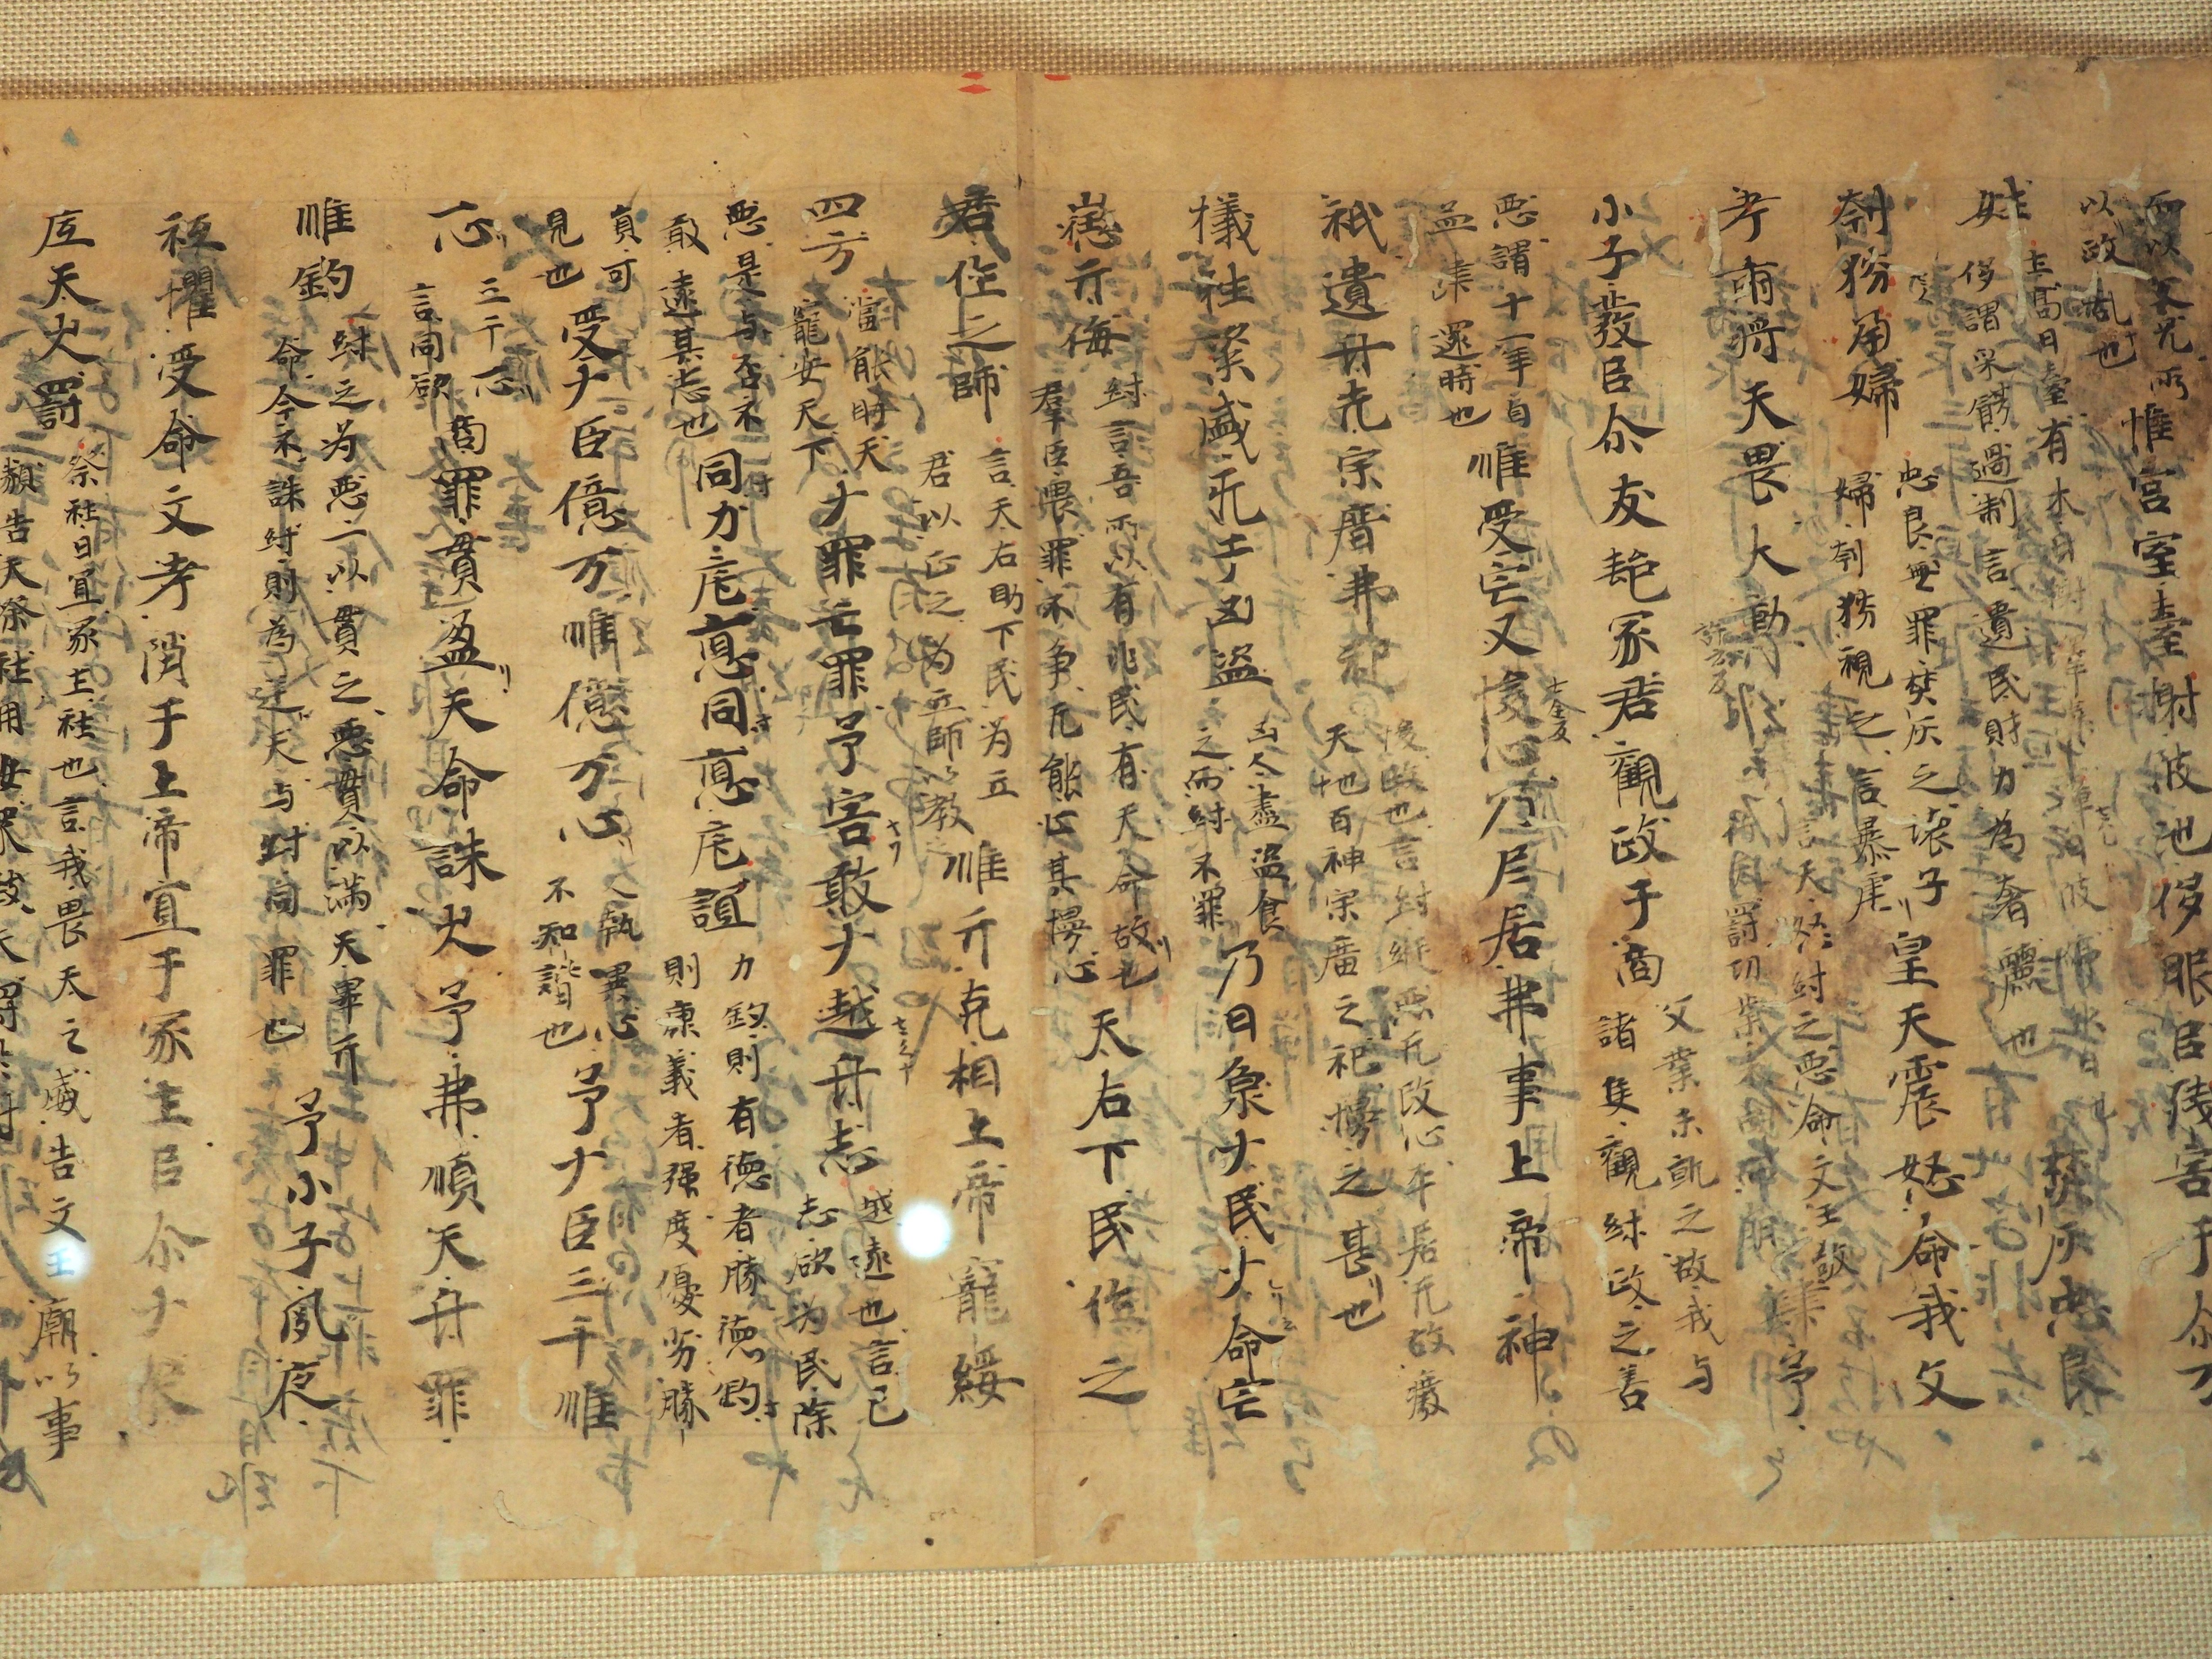 而以不 兄所
以政乱也
惟宫室臺榭陂池侈眠臣残害于尒万
姓
土高曰臺有木曰榭 陂停水曰
侈謂采飾過制言遺民財力為奢麗也
焚炙忠良
刳 婦
忠良無罪焚灰之懷子
婦刳 視之言暴虐
皇天震怒命我文
考肅将天畏大勛
言天怒紂之悪命文王敬
罸功業未 而崩
肆予
小子發臣尒友 冢君觀政于商
父業未就之故我与
諸侯觀紂政之善
悪謂十一年自
孟津還時也
惟受宅又悛心乃𡰥居弗事上帝神
祇遺厥先宗庿弗祀
悛改也言紂縱悪无改心平居无故癈
天地百神宗廟之祀慢之甚也
犠牲粢盛旡于凶盜
凶人盡盜食
之而紂不罪
乃曰 ナ民ナ命宅
懲亓侮
紂言吾所以有兆民有天命故也
羣臣畏罪不争无能止其慢心
天右下民作之
君作之師
言天右助下民为立
君以正之为立師以教之
惟亓克相上帝寵綏
四方
當能助天
寵安天下
ナ罪亡罪予害敢ナ越厥志
越遠也言己
志欲为民除
悪是与否不
敢遠其志也
同力庀悳同悳庀誼
力鈞則有德者勝德鈞
則秉義者强度優劣勝
負可
見也
受ナ臣億万惟億万心
人執異心
不和諧也
予ナ臣三千惟
一心
三千一心
言同欲
商罪貫盈天命誅㞢予弗順天厥罪
惟鈞
紂之为悪一以貫之悪貫以滿天畢亓
命今不誅紂則為逆天与紂同罪也
予小子夙夜
祗懼受命文考 于上帝宜于冢土臣尒ナ衆
厎天㞢罰
祭社曰宜冢土社也言我畏天之威告文王廟以事
類告天祭社用汝衆致天